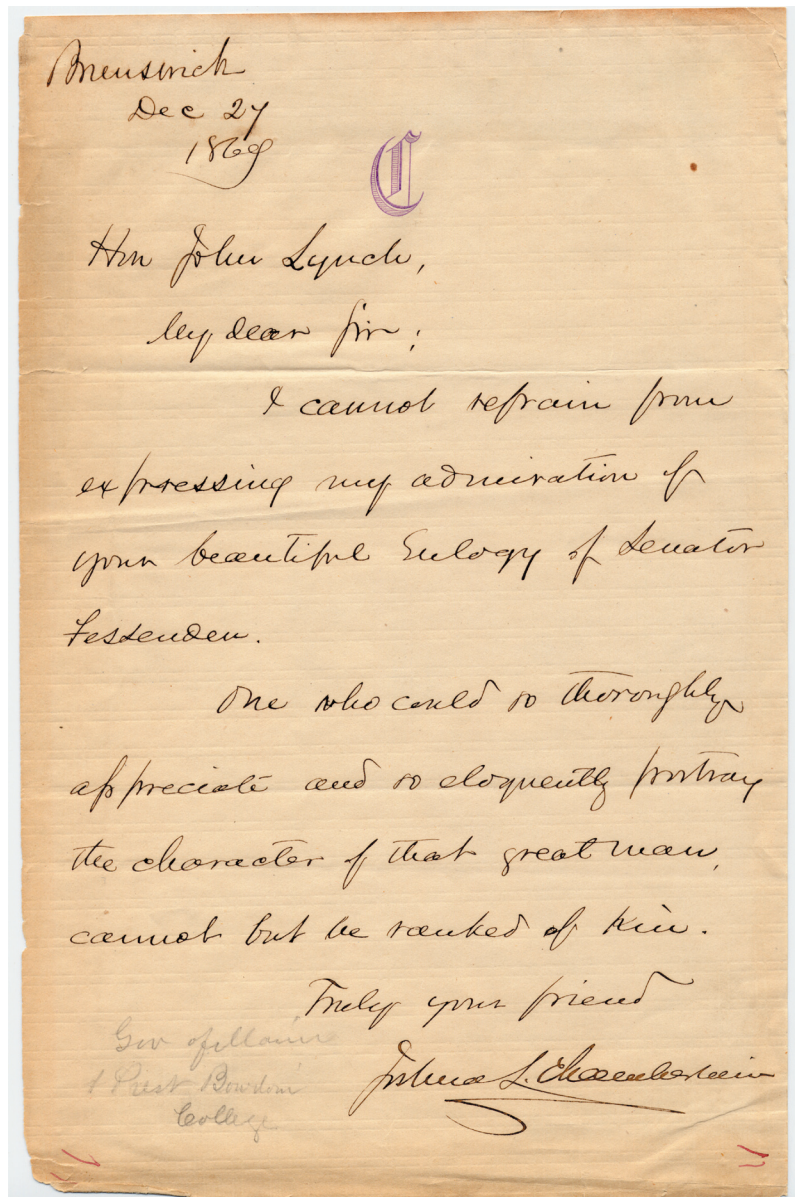 Brunswick
Dec 27
1869
C
Hon John Lynch,
My dear Sir;
I cannot refrain from
expressing my admiration of
your beautiful Eulogy of Senator
Fessenden.
One who could so thoroughly
appreciate and so eloquently portray
the character of that great man,
cannot but be ranked of Kin.
Truly your friend
Joshua L. Chamberlain
Gov of Maine
& Prest Bowdoin
College